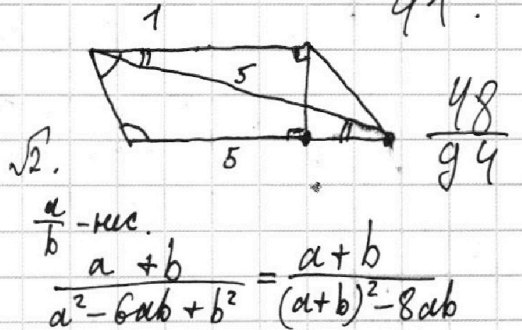 1
5
5
48/94
√2.
a/b - нес.
(a + b)/(a² - 6ab + b²) = (a + b)/((a+b)² - 8ab)